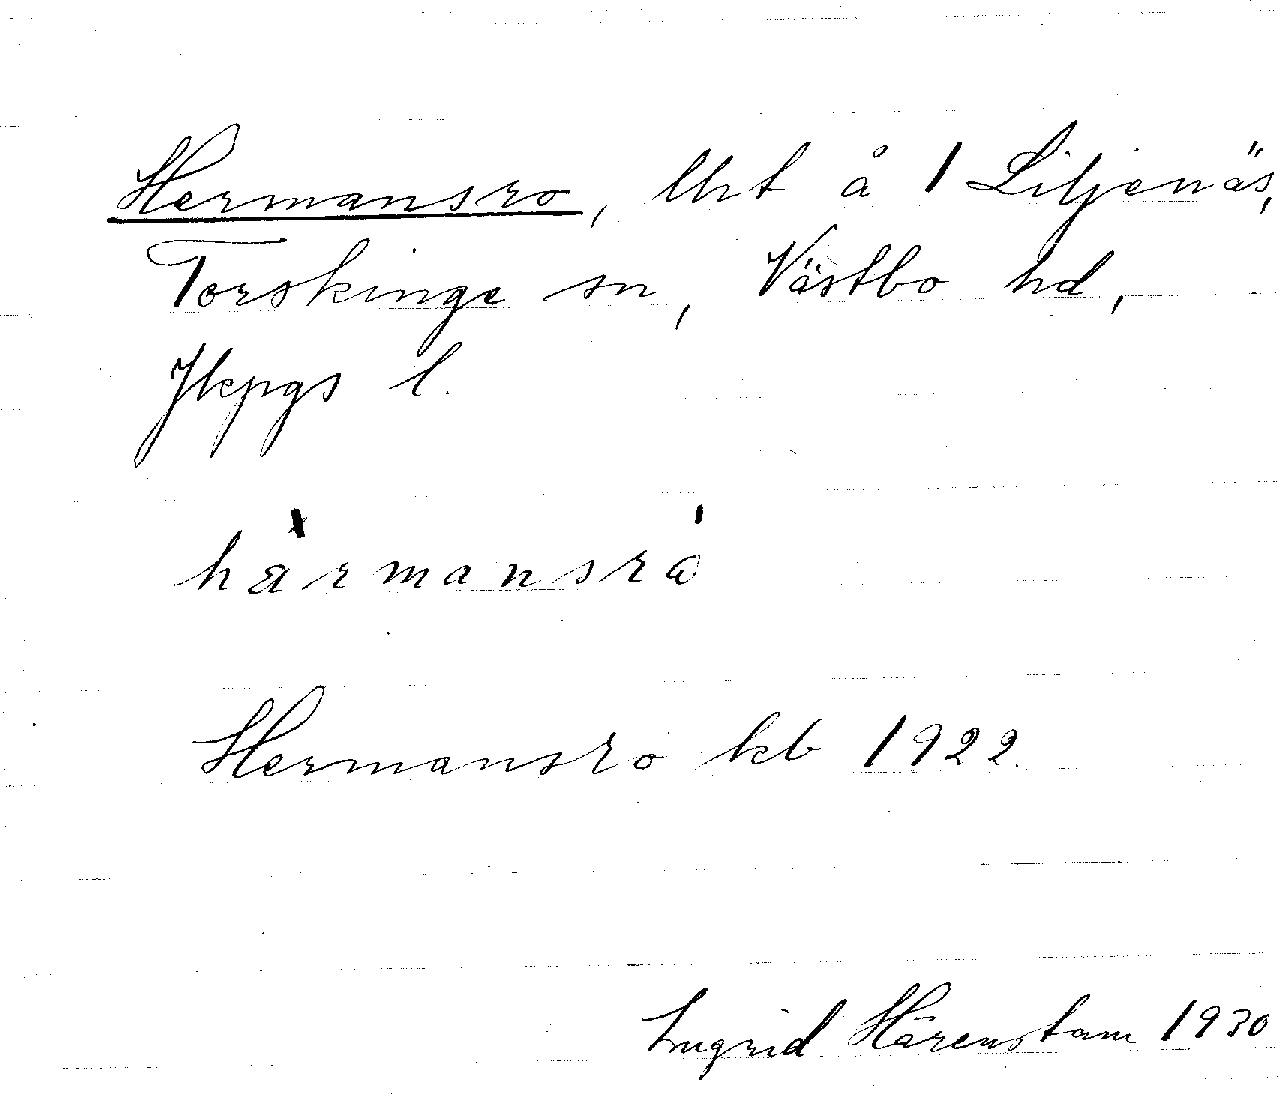 Hermansro, lht å 1 Liljenäs,
Torskinge sn, Västbo hd,
Jkpgs l.
hàrmansrǻ
Hermansro kb 1922.
Ingrid Härenstam 1930